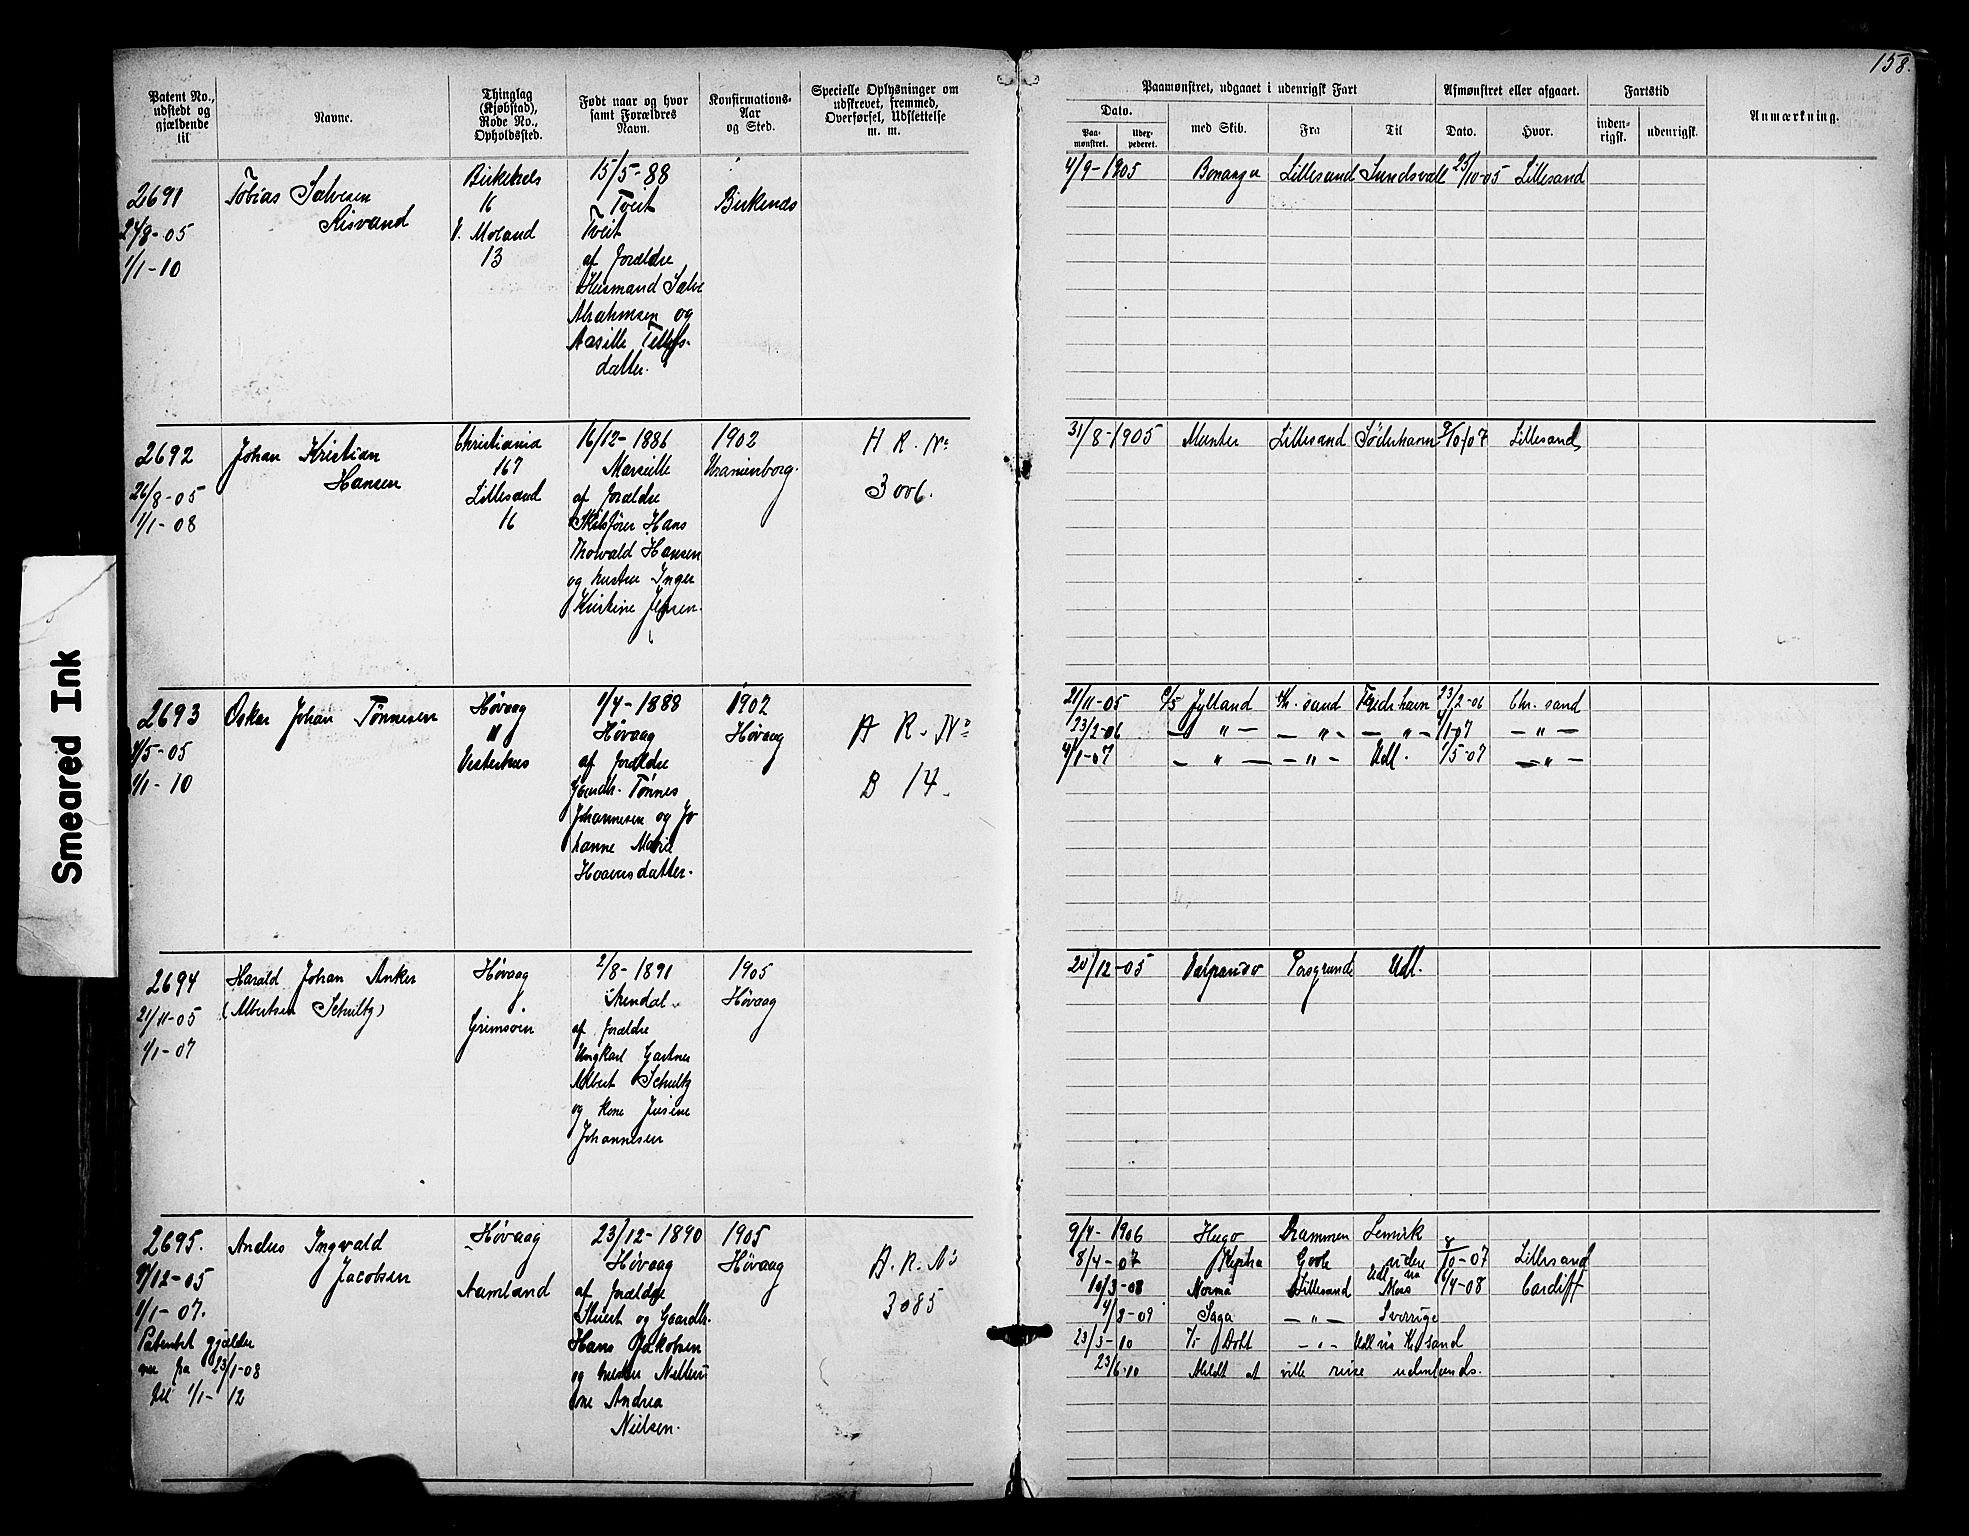 158.
Patent No., udstedt og gjældende til
Navne.
Thinglag (Kjøbstad), Rode No., Opholdssted.
Født naar og hvor samt Forældres Navn.
Konfirmations-Aar og Sted.
Specielle Oplysninger om udskrevet, fremmed, Overførsel, Udslettelse m. m.
Paamønstret, udgaaet i udenrigsk Fart
Dato.
Paa-mønstret.
Udex-pederet.
med Skib.
Fra
Til
Afmønstret eller afgaaet.
Dato.
Hvor.
Fartstid
inden-rigsk.
udenrigsk.
Anmærkning.
2691
24/8-05
1/1-10
Tobias Salvesen
Risvand
Birkenes
16
V. Moland
13
15/5-88
Tveit
Tveit
af Forældre
Husmand Salve
Abrahmsen og
Aasille Tellefs-
datter.
Birkenes
4/9-1905 Bonanza Lillesand Sundsvall 25/10-05 Lillesand
2692
26/8-05
1/1-08
Johan Kristian
Hansen
Christiania
167
Lillesand
16
16/12-1886
Marseille
af Forældre
Skibsfører Hans
Thorvald Hansen
og hustru Inger
Kristine Jensen.
1902
Uranienborg.
H R. No
3006.
31/8-1905 Munter Lillesand Söderhamn 9/10-07 Lillesand
2693
4/5-05
1/1-10
Oskar Johan Tønnesen
Høvaag
11
Vesterhus
1/4-1888
Høvaag
af Forældre
Gaardb. Tønnes
Johannesen og Jo
hanne Marie
Haavesdatter.
1902
Høvaag
A R. No
B 14.
21/11-05 D/S Jylland Kr. sand Fredr.havn 23/2-06 Chr. sand
23/2-06 — " — — " — — " — 4/1-07 — " —
4/1-07 — " — — " — Udl. 1/5-07 — " —
2694
21/11-05
1/1-07
Harald Johan Anker
(Albertsen Schultz)
Høvaag
Grimsøen
2/8-1891
Arendal
af Forældre
Ungkarl Gartner
Albert Schultz
og Kone
Johannesen
1905
Høvaag
20/12-05 Valparaiso Porsgrund Udl.
2695.
9/12-05
1/1-07.
Patentet gjælder
fra 23/1-08
til 1/1-12
Anders Ingvald
Jacobsen
Høvaag
Aamland
23/12-1890
Høvaag
af Forældre
Stuert og Gaardbr.
Hans Jakobsen
og hustru
Andrea
Nielsen.
1905
Høvaag
A. R. No
3085
9/4-1906 Hugo Drammen Lemvik
8/4-07 Goole 8/10-07 Lillesand
10/3-08 Norma Lillesand Udl via Moss 6/4-08 Cardiff
4/8-09 Saga — " — Sverrige
23/3-10 — " — Udl via Kr sand
23/6-10 Meldt at ville reise udenlands.
Smeared Ink